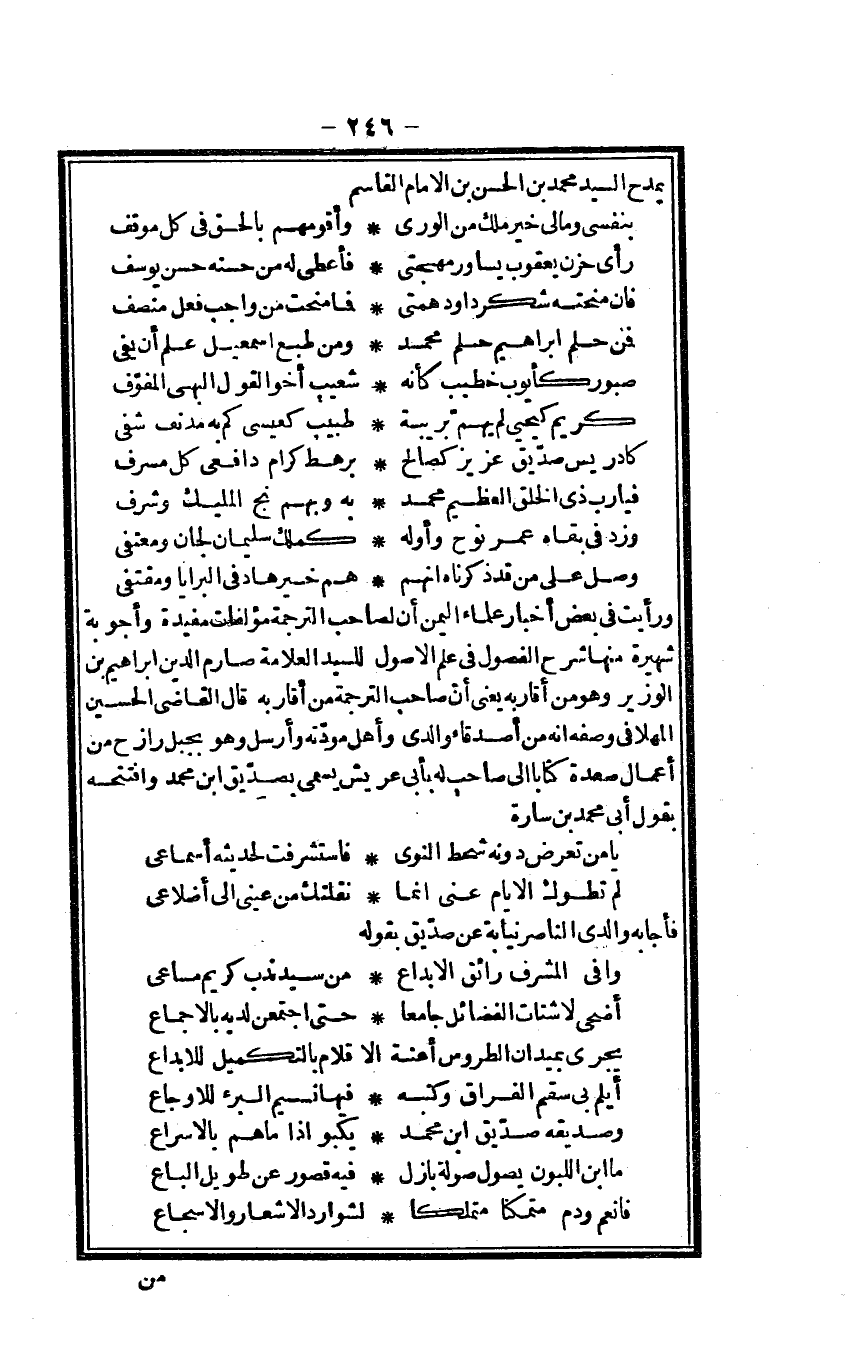 - ٢٤٦ -
يمدح السيد محمد بن الحسن بن الامام القاسم
بنفسى ومالى خير ملك من الورى * وأقومهم بالحق فى كل موقف
رأى حزن يعقوب يساور مهجتى * فأعطى له من حسنه حسن يوسف
فان منحته شكر داود همتى * فما منحت من واجب فعل منصف
فمن حلم ابراهيم حلم محمد * ومن طبع اسمعيل علم أن يفى
صبور كأيوب خطيب كأنه * شعيب أخو القول البهى المفوّف
كريم كيحيى لم يهم بريبة * طبيب كعيسى كم به مدنف شفى
كادريس صدّيق عزيز كصالح * برهط كرام دافعى كل مسرف
فيارب ذى الخلق العظيم محمد * به وبهم نج المليك وشرف
وزد فى بقاه عمر نوح وأوله * كملك سليمان لجان ومعتفى
وصل على من قد ذكرناه انهم * هم خير هاد فى البرايا ومقتفى
ورأيت فى بعض أخبار علماء اليمن أن لصاحب الترجمة مؤلفات مفيدة وأجوبة
شهيرة منها شرح الفصول فى علم الاصول للسيد العلامة صارم الدين ابراهيم بن
الوزير وهو من أقاربه يعنى أنّ صاحب الترجمة من أقاربه قال القاضى الحسين
المهلا فى وصفه انه من أصدقاء والدى وأهل مودّته وأرسل وهو بجبل رازح من
أعمال صعدة كتابا الى صاحب له بأبى عريش يسمى بصدّيق ابن محمد وافتتحه
بقول أبى محمد بن سارة
يا من تعرض دونه شحط النوى * فاستشرفت لحديثه أسماعى
لم تطوك الايام عنى انما * نقلتك من عينى الى أضلاعى
فأجابه والدى الناصر نيابة عن صدّيق بقوله
وافى المشرف رائق الابداع * من سيد ندب كريم مساعى
أضحى لاشتات الفضائل جامعا * حتى اجتمعن لديه بالاجماع
يجرى بميدان الطروس أعنة الا قلام بالتكميل للابداع
أيلم بى سقم الفراق وكتبه * فيها نسيم البرء للاوجاع
وصديقه صدّيق ابن محمد * يكبو اذا ما هم بالاسراع
ما ابن اللبون يصول صولة بازل * فيه قصور عن طويل الباع
فانعم ودم متمكنا متملكا * لشوارد الاشعار والاسجاع
من